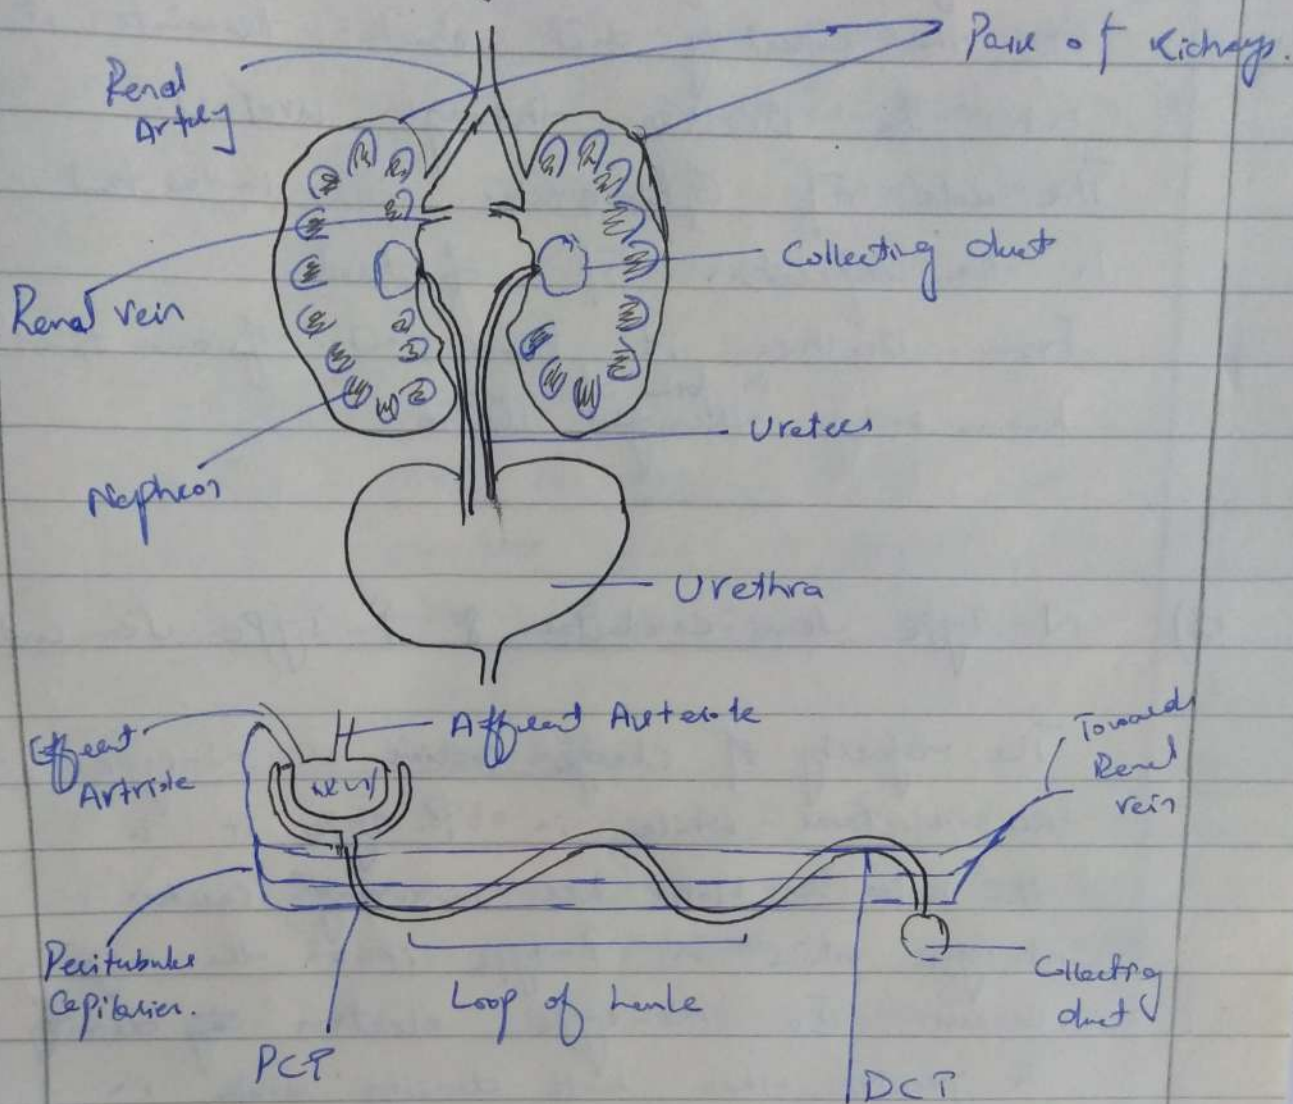 Renal
Artery
Pair of Kidneys.
Renal vein
Collecting duct
Nephron
Ureters
Urethra
Efferent
Artriole
Afferent Arteriole
Towards
Renal
vein
Peritubular
Capilaries.
PCT
Loop of henle
DCT
Collecting
duct